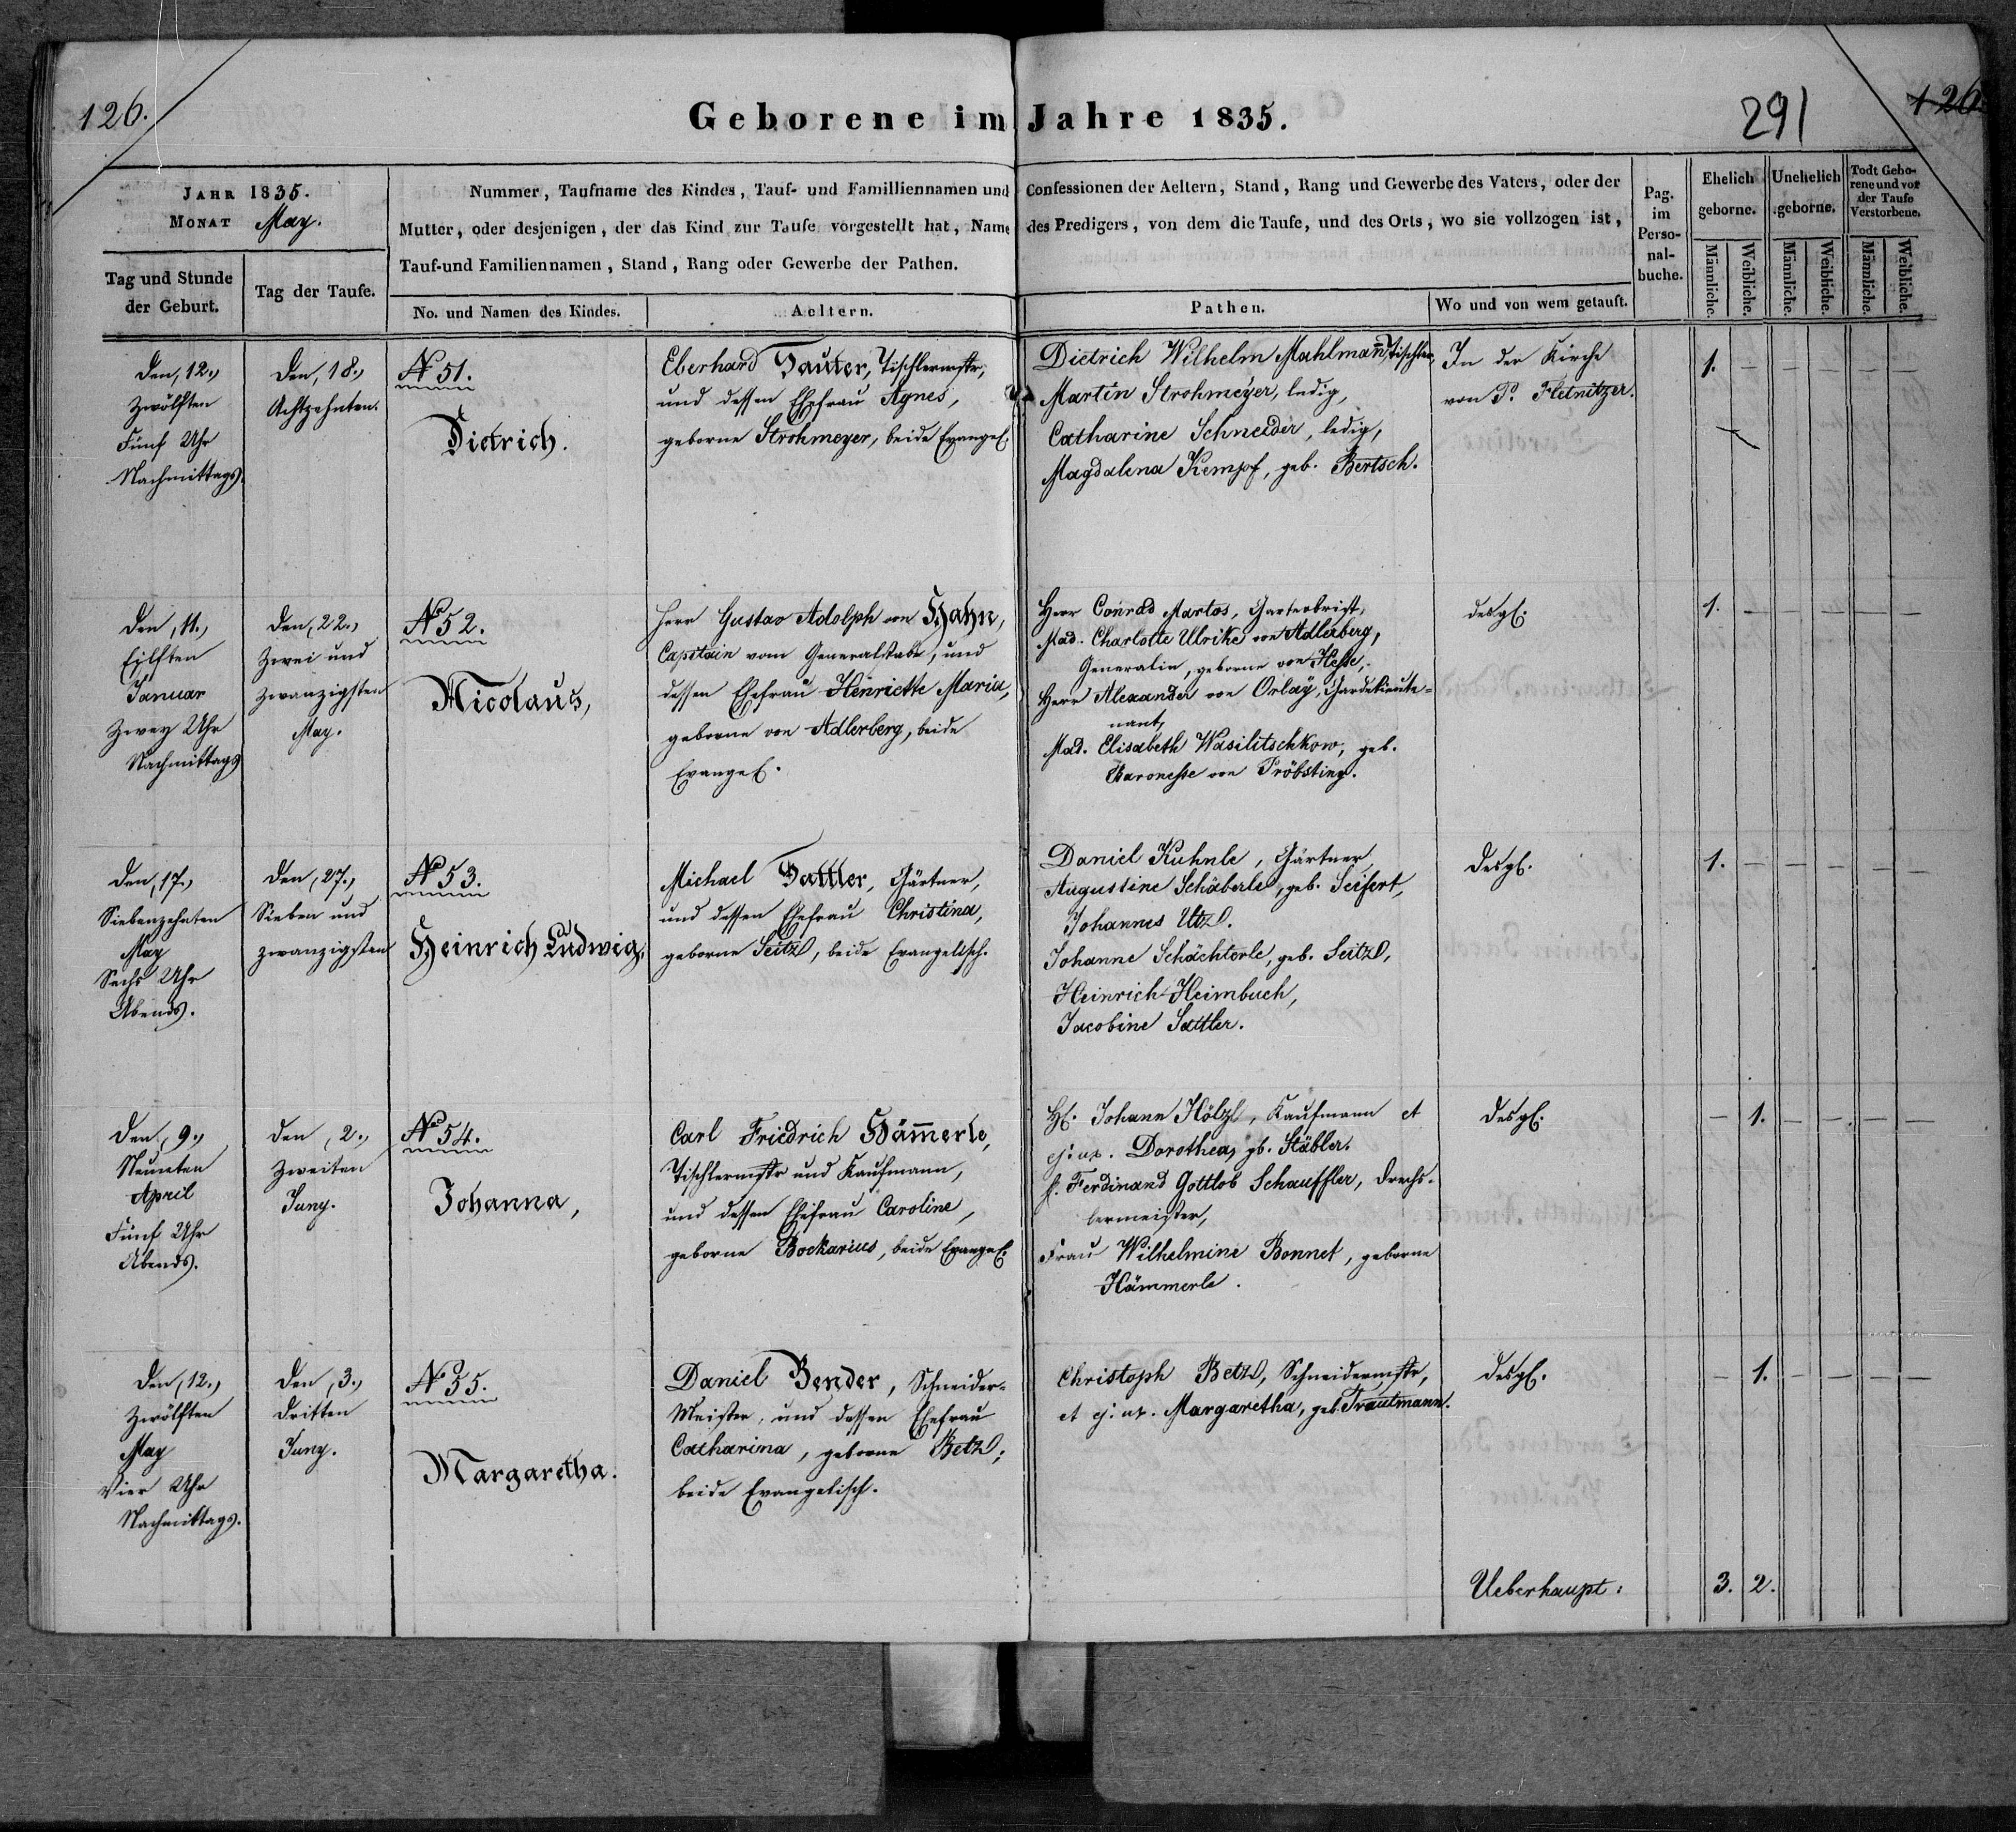 126.
Geborene im Jahre 1835.
291
126.
JAHR 1835.
MONAT May.
Nummer, Taufname des Kindes, Tauf- und Familliennamen und Confessionen der Aeltern, Stand, Rang und Gewerbe des Vaters, oder der
Mutter, oder desjenigen, der das Kind zur Taufe vorgestellt hat, Name des Predigers, von dem die Taufe, und des Orts, wo sie vollzogen ist,
Tauf-und Familiennamen, Stand, Rang oder Gewerbe der Pathen.
Tag und Stunde
der Geburt.
Tag der Taufe.
No. und Namen des Kindes.
Aeltern.
Pathen.
Wo und von wem getauft.
Pag.
im
Perso-
nal-
buche.
Ehelich
geborne.
Unehelich
geborne.
Todt Gebo-
rene und vor
der Taufe
Verstorbene.
Männliche.
Weibliche.
Männliche.
Weibliche.
Männliche.
Weibliche.
Den, 12.,
Zwölften
Fünf Uhr
Nachmittags.
Den, 18.,
Achtzehnten.
No 51.
Dietrich.
Eberhard Sauter, Tischlermstr,
und dessen Ehefrau Agnes,
geborne Strohmeyer, beide Evangel.
Dietrich Wilhelm Mahlmann, Tischler,
Martin Strohmeyer, ledig,
Catharine Schneider, ledig,
Magdalena Kempf, geb. Bertsch.
In der Kirche
von P. Fletnitzer.
1. — — — — —
Den, 11.,
Eilften
Januar
Zwey Uhr
Nachmittags
Den, 22.,
Zwei und
zwanzigsten
May.
No 52.
Nicolaus,
Herr Gustav Adolph von Hahn,
Capitain vom Generalstabe, und
dessen Ehefrau Henriette Maria,
geborne von Adlerberg, beide
Evangel.
Herr Conrad Martos,
Mad. Charlotte Ulrike von Adlerberg,
Generalin, geborne von Hesse,
Herr Alexander von Orlay, Gardelieute-
nant,
Mad. Elisabeth Wasilitschkow, geb.
Baronesse von Pröbsting.
desgl.
1. — — — — —
Den, 17.,
Siebenzehnten
May
Sechs Uhr
Abends.
Den, 27.,
Sieben und
zwanzigsten
No 53.
Heinrich Ludwig,
Michael Sattler, Gärtner,
und dessen Ehefrau Christina,
geborne Seitz, beide Evangelisch.
Daniel Kuhnle, Gärtner,
Augustine Schäberle, geb. Seifert,
Johannes Utz.
Johanne Schächterle, geb. Seitz,
Heinrich Heimbuch,
Jacobine Sattler.
desgl.
1. — — — — —
Den, 9.,
Neunten
April
Fünf Uhr
Abends.
Den, 2.,
Zweiten
Juny.
No 54.
Johanna,
Carl Friedrich Hämmerle,
Tischlermstr und Kaufmann,
und dessen Ehefrau Caroline,
geborne Bockarius, beide Evangel.
H. Johann Hölzl, Kaufmann et
ej: ux. Dorothea, gb. Stäbler.
H. Ferdinand Gottlob Schauffler, Drechs-
lermeister,
Frau Wilhelmine Bonnet, geborne
Hämmerle.
desgl.
— 1. — — — —
Den, 12.,
Zwölften
May
Vier Uhr
Nachmittags.
Den, 3.,
Dritten
Juny.
No 55.
Margaretha.
Daniel Bender, Schneider-
Meister, und dessen Ehefrau
Catharina, geborne Betz;
beide Evangelisch.
Christoph Betz, Schneidermstr,
et ej: ux. Margaretha, geb. Trautmann.
desgl.
— 1. — — — —
Ueberhaupt:
3. 2.